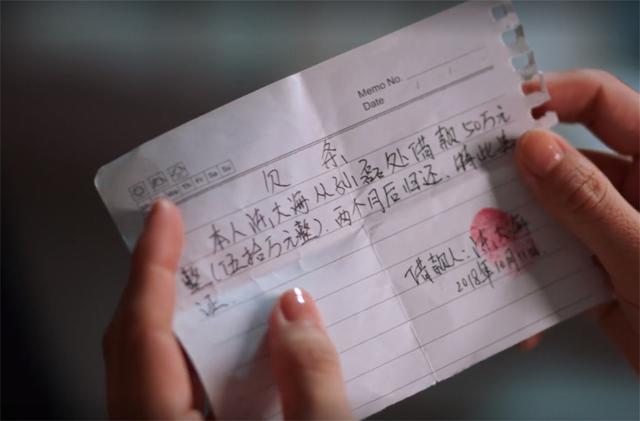 Memo No.
Date / /
We Th Fr Sa Su
欠 条
本人沈大海从孙磊处借款50万元
整(伍拾万元整),两个月后归还.特此为
证.
借款人:沈大海
2018年10月11日.